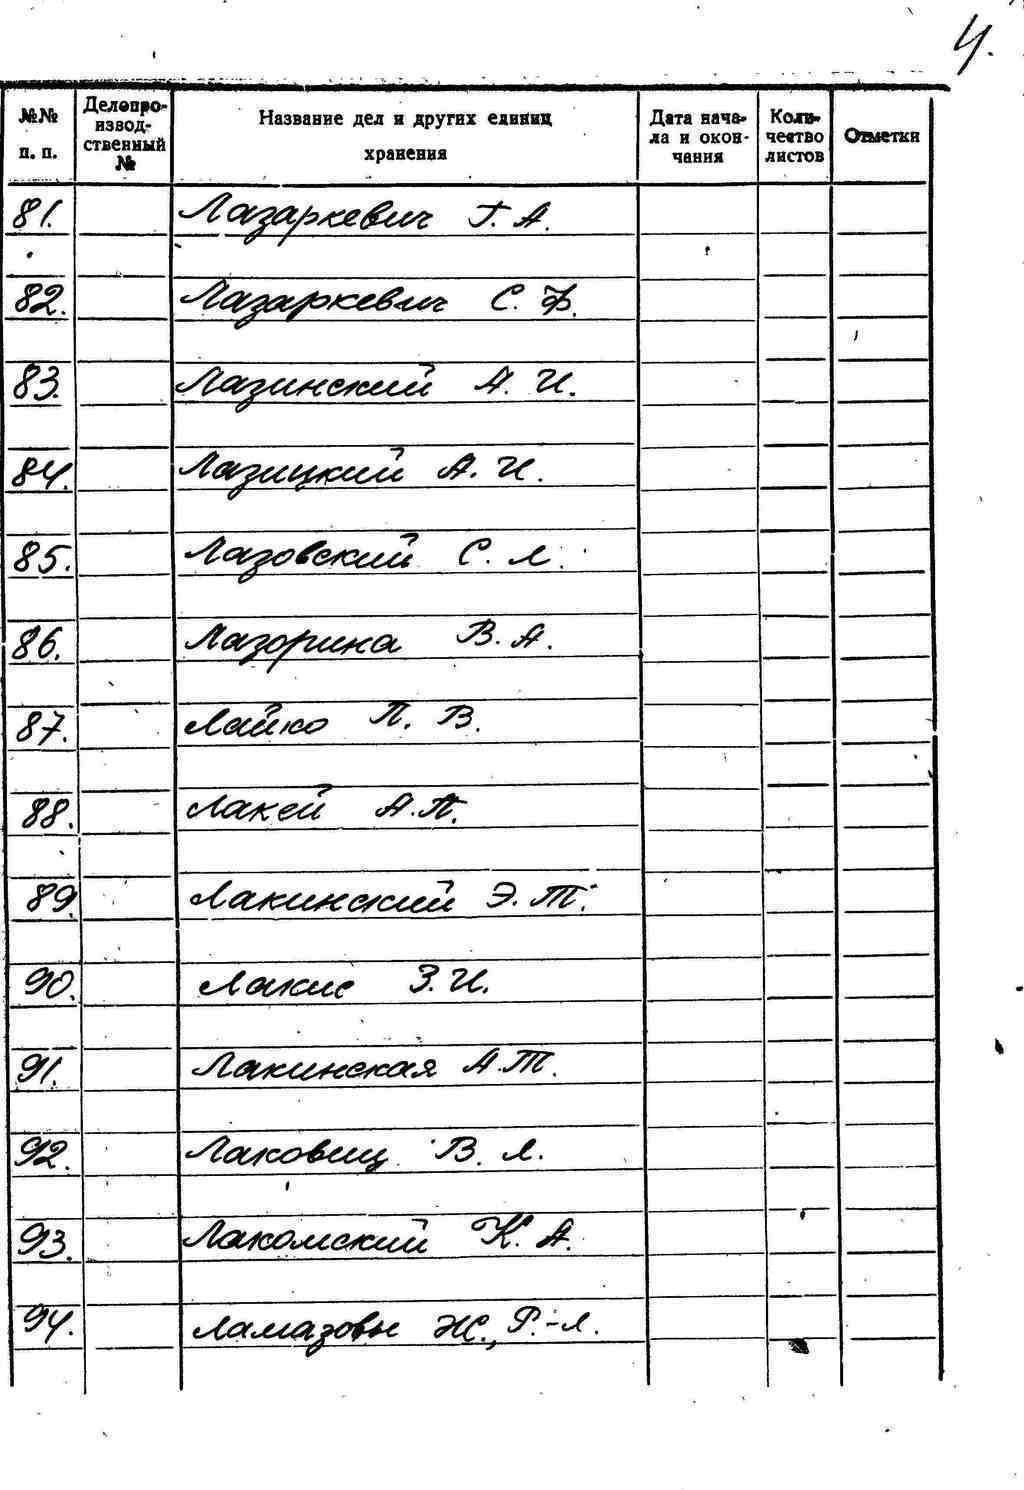 4.
№№ п. п. Делопроизводственный № Название дел и других единиц хранения Дата начала и окончания Количество листов Отметки
81. Лазаркевич Г. А.
82. Лазаркевич С. Ф.
83. Лазинский А. И.
84. Лазицкий А. И.
85. Лазовский С. Л.
86. Лазорина В. А.
87. Лайко П. В.
88. Лакей А. П.
89. Лакинский Э. Т.
90. Лакис З. И.
91. Лакинская А. Т.
92. Лаковиц В. Л.
93. Лакомский К. А.
94. Ламазовы Ж., Р.-Л.